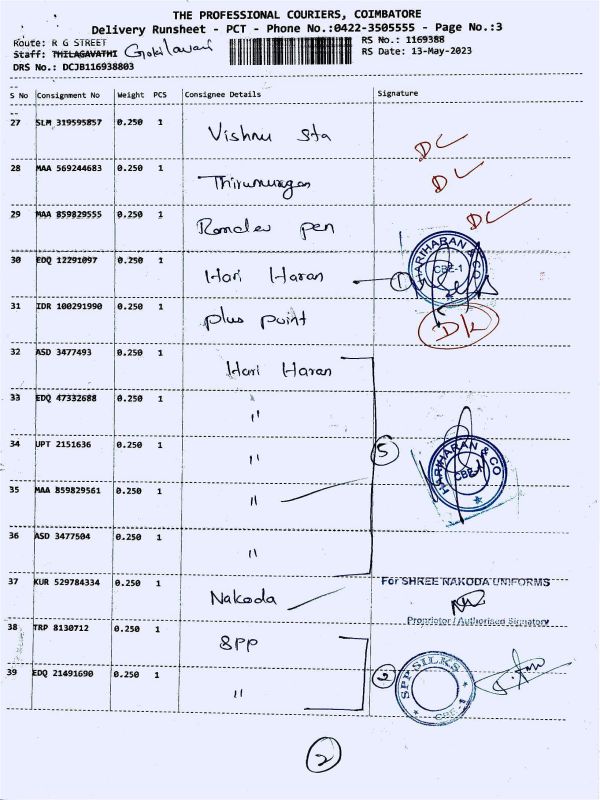 THE PROFESSIONAL COURIERS, COIMBATORE
Delivery Runsheet - PCT - Phone No.:0422-3505555 - Page No.:3
Route: R G STREET
RS No.: 1169388
Staff: THILAGAVATHI Gokilavani
RS Date: 13-May-2023
DRS No.: DCJB116938803
S No Consignment No Weight PCS Consignee Details Signature
27 SLM 319595857 0.250 1 Vishnu Sta
DL
28 MAA 569244683 0.250 1 Thirumurugan
DL
29 MAA 859829555 0.250 1 Ramdev pen
DL
30 EDQ 12291097 0.250 1 Hari Haran 1
HARIHARAN & CO
CBE-1
31 IDR 100291990 0.250 1 plus point
D/L
32 ASD 3477493 0.250 1 Hari Haran
33 EDQ 47332688 0.250 1 "
34 UPT 2151636 0.250 1 "
5
HARIHARAN & CO
CBE-1
35 MAA 859829561 0.250 1 "
36 ASD 3477504 0.250 1 "
37 KUR 529784334 0.250 1 Nakoda
For SHREE NAKODA UNIFORMS
Proprietor / Authorised Signatory
38 TRP 8130712 0.250 1 SPP
39 EDQ 21491690 0.250 1 "
2
SPP SILKS
CBE - 1
2